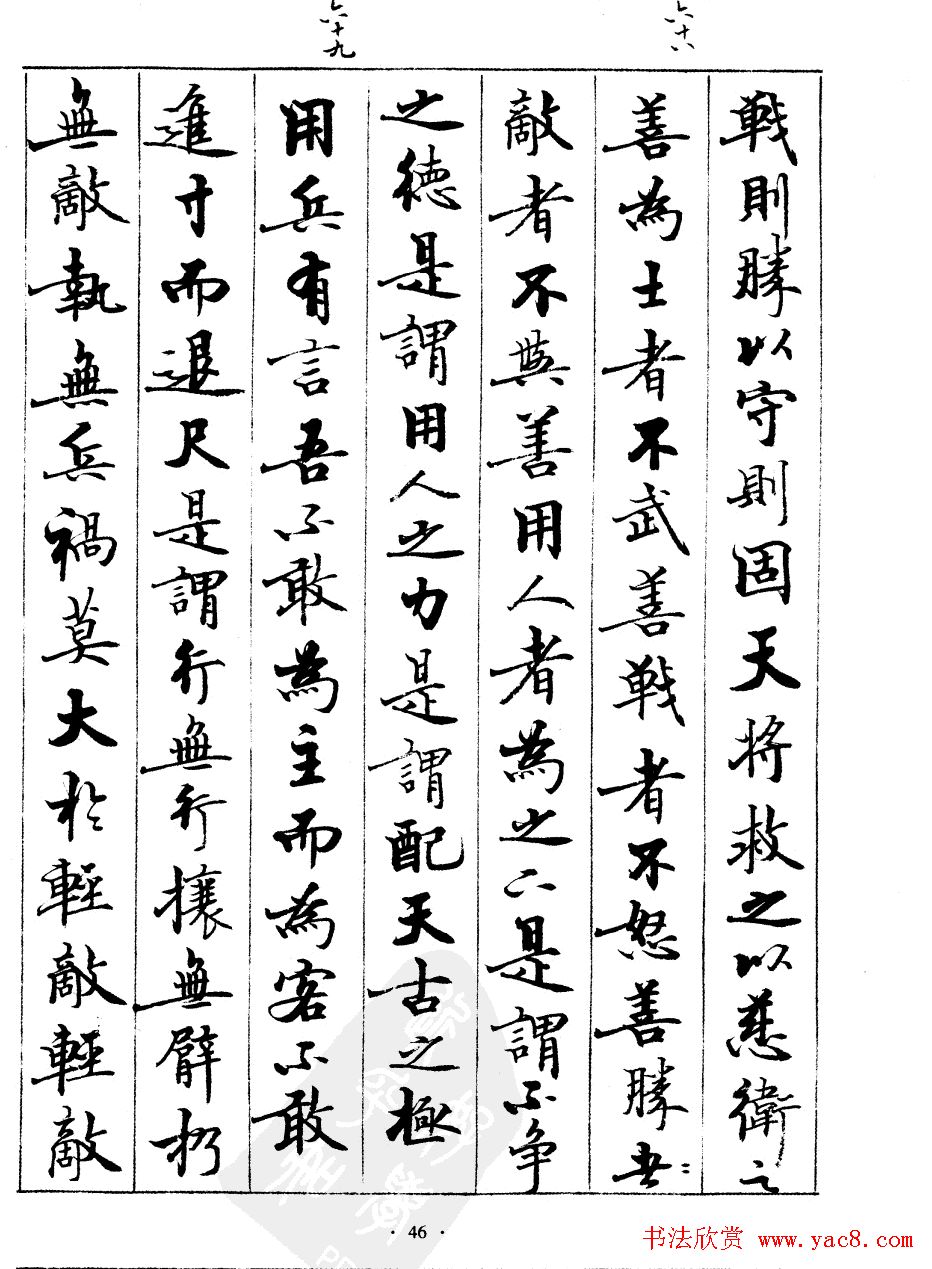 六十八
六十九
戰則勝以守則固天將救之以慈衛之
善為士者不武善戰者不怒善勝者
敵者不與善用人者為之下是謂不爭
之德是謂用人之力是謂配天古之極
用兵有言吾不敢為主而為客不敢
進寸而退尺是謂行無行攘無臂扔
無敵執無兵禍莫大於輕敵輕敵
· 46 ·
书法欣赏 www.yac8.com